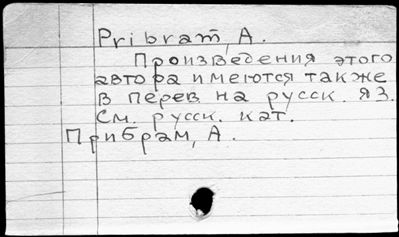 Pribram, A.
Произведения этого
автора имеются также
в перев. на русск. яз.
См. русск. кат.
Прибрам, А.